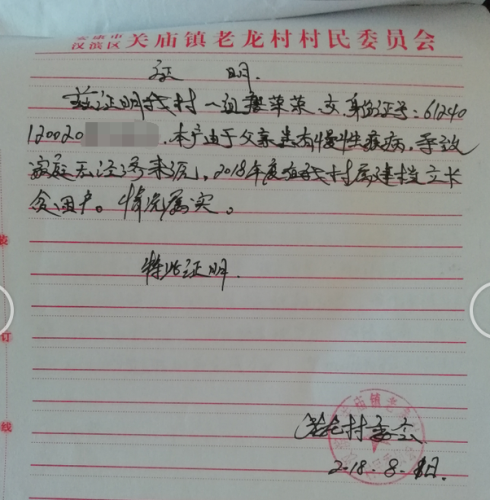 汉滨区关庙镇老龙村村民委员会
证 明.
兹证明我村一组荣,女,身份证号:61240
120020 .本户由于父亲患有慢性疾病,导致
家庭无经济来源,2018年度在我村属建档立卡
贫困户。情况属实。
特此证明.
老龙村委会
2018.8.日
装
订
线